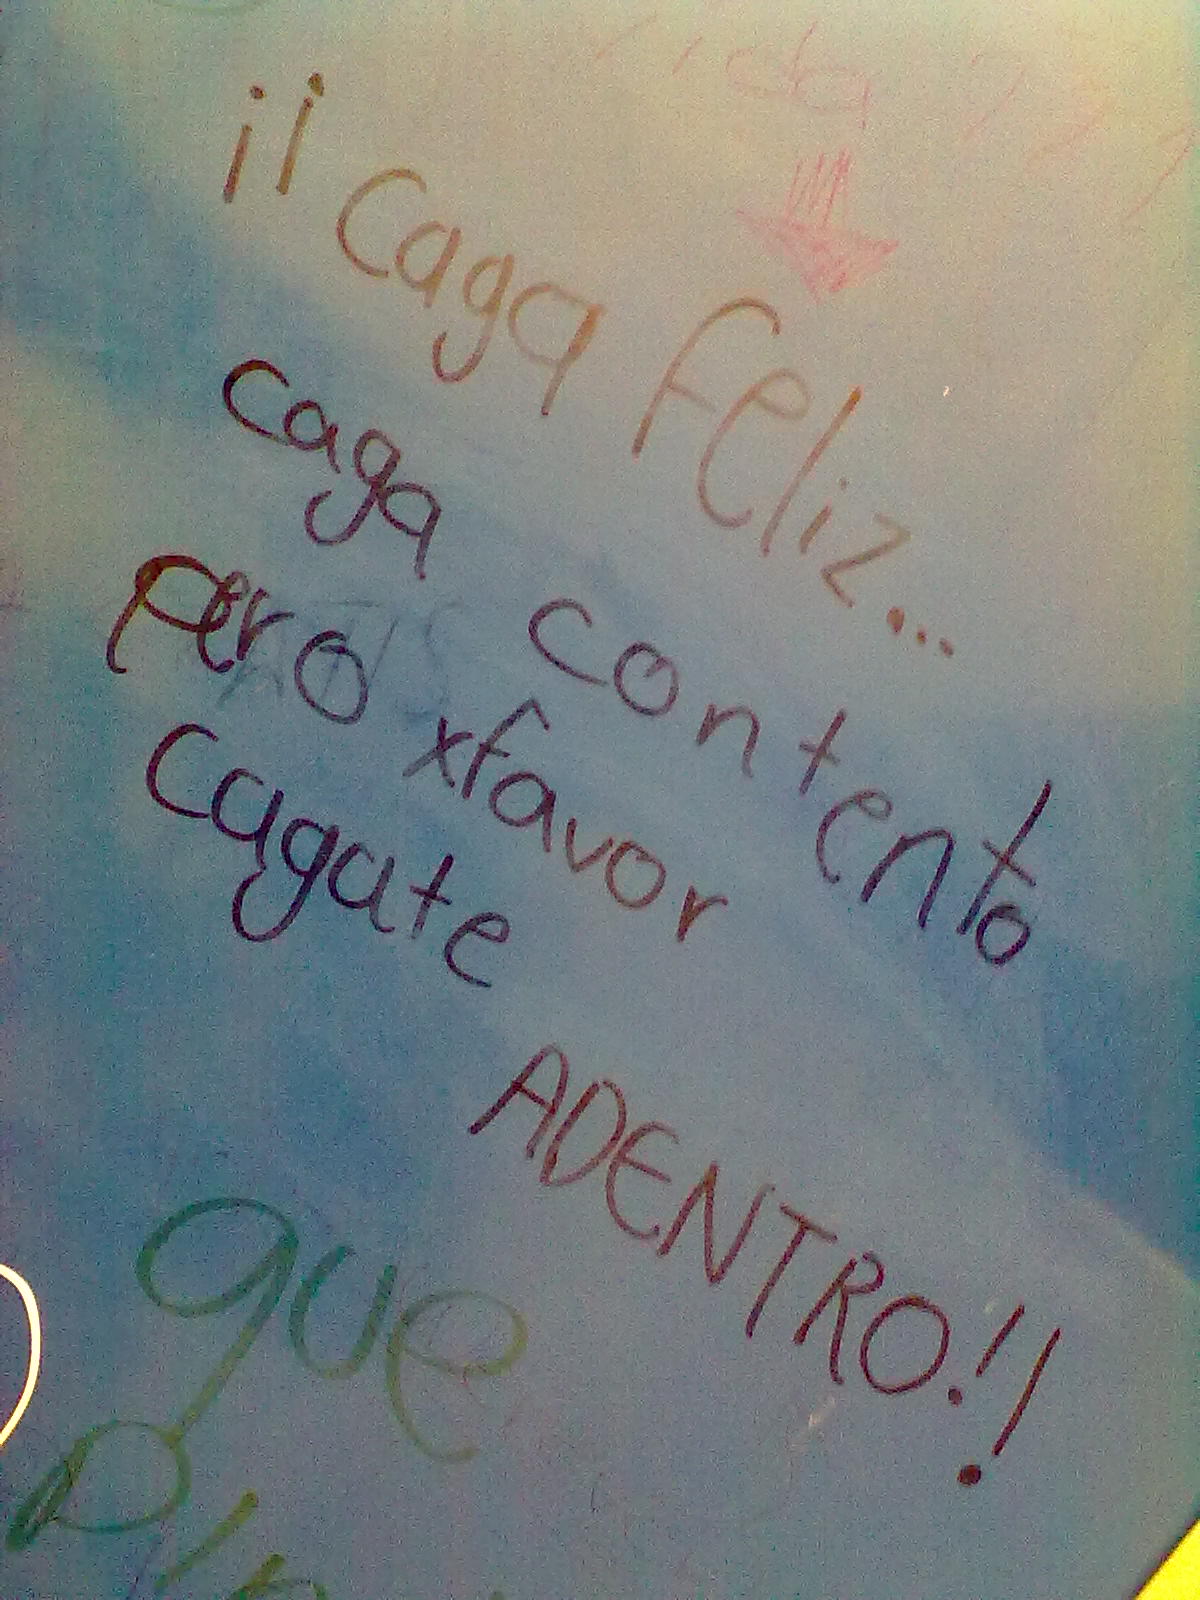 ¡¡ Caga Feliz...
caga contento
Pero xfavor
cagate
ADENTRO!!
que